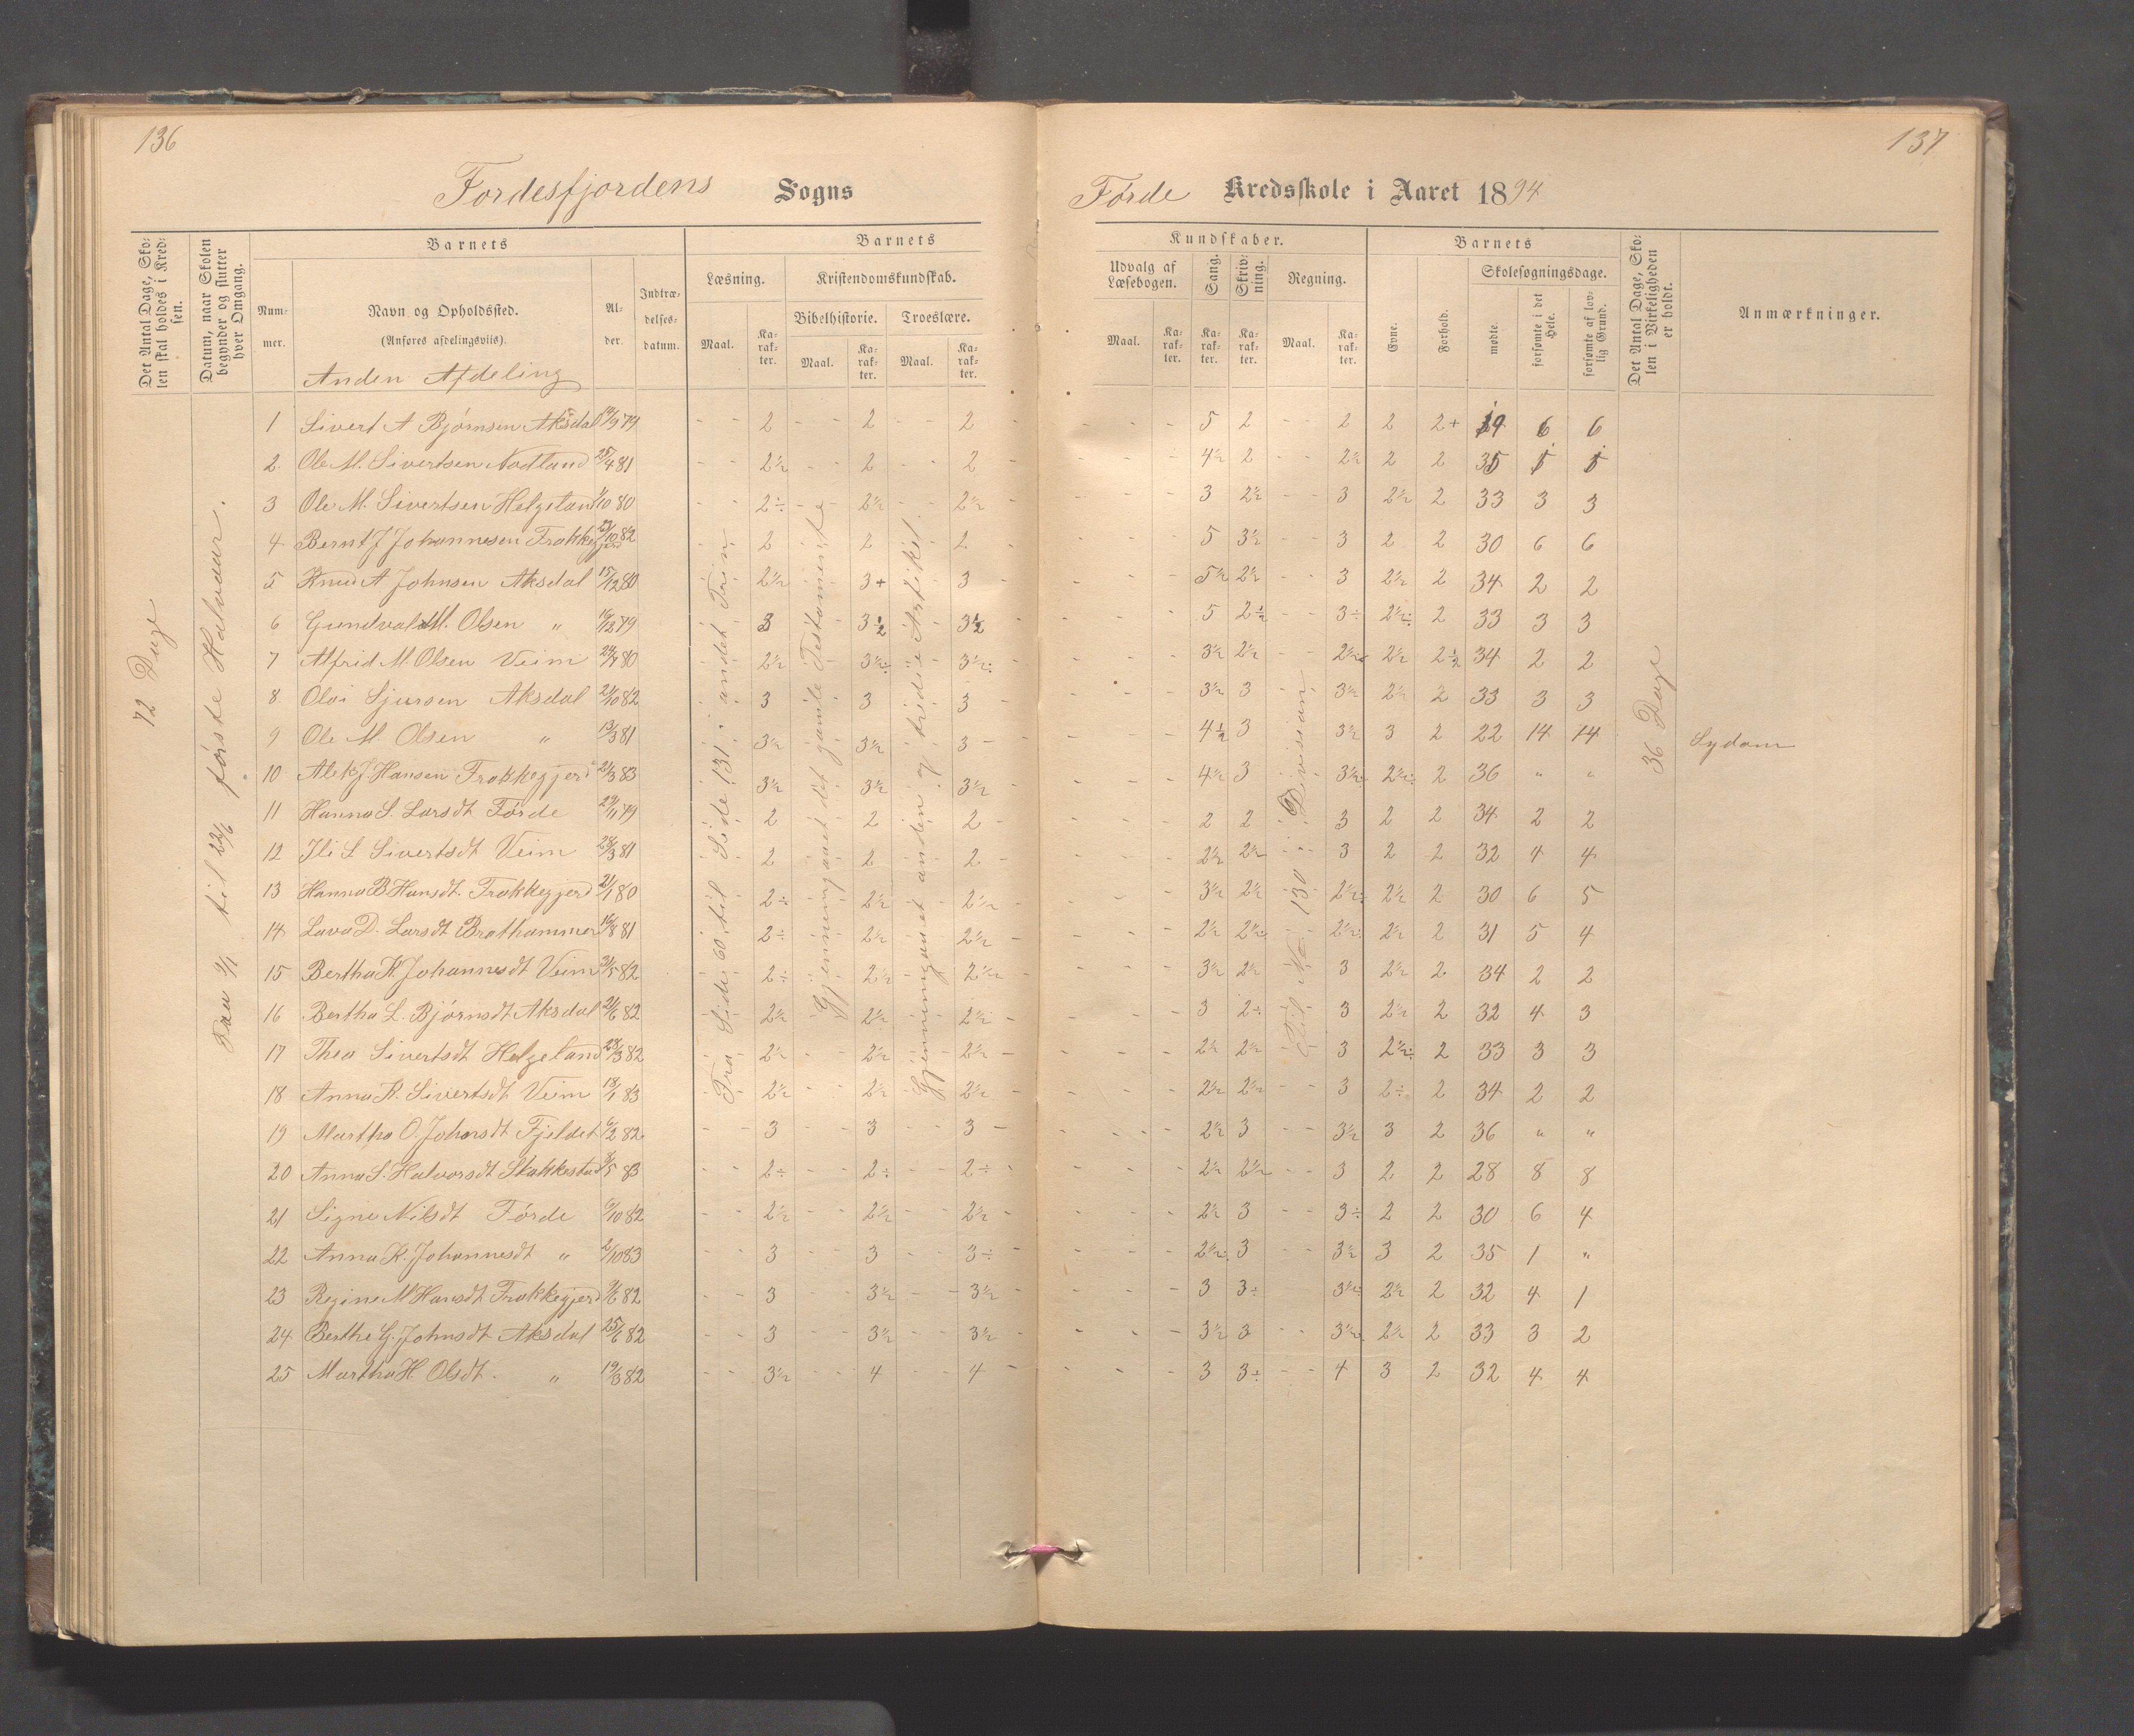 136
137
Fordesfjordens Sogns
Førde Kredsskole i Aaret 1894
Det Antal Dage, Skolen skal holdes i Kredsen.
Datum, naar Skolen begynder og slutter hver Omgang.
Barnets
Nummer.
Navn og Opholdssted.
(Anføres afdelingsviis).
Alder.
Indtrædelsesdatum.
Barnets
Læsning.
Maal.
Karakter.
Kristendomskundskab.
Bibelhistorie.
Maal.
Karakter.
Troeslære.
Maal.
Karakter.
Kundskaber.
Udvalg af Læsebogen.
Maal.
Karakter.
Sang.
Karakter.
Skrivning.
Karakter.
Regning.
Maal.
Karakter.
Barnets
Evne.
Forhold.
Skolesøgningsdage.
mødte.
forsømte i det Hele.
forsømte af lovlig Grund.
Det Antal Dage, Skolen i Virkeligheden er holdt.
Anmærkninger.
Anden Afdeling
72 Dage
til 22/6 første Halvaar.
Fra Side 60 til Side 131 i andet Trin
Gjennemgaaet det gamle Testamente
Gjennemgaaet anden og tredie Artikel
Til No. 130 i Division
36 Dage
1 Sivert A Bjørnsen Aksdal 79 2 2 2 5 2 2 2 2+ 6 6
2 Ole M. Sivertsen Nodland 25/4 81 2½ 2 2 4½ 2 2½ 2 2 35
3 Ole M. Sivertsen Helgeland 1/10 80 2÷ 2½ 2½ 3 2½ 3 2½ 2 33 3 3
4 Bernt J Johannesen Frakkegjerd 82 2 2 2 5 3½ 3 2 2 30 6 6
5 Knud A Johnsen Aksdal 15/12 80 2½ 3+ 3 5½ 2½ 3 2½ 2 34 2 2
6 Gundvald M. Olsen " 16/12 79 3 3½ 3½ 5 2½ 3÷ 2½÷ 2 33 3 3
7 Alfrid M. Olsen Veim 80 2½ 3½÷ 3½÷ 3½ 2½ 2½ 2½ 2½ 34 2 2
8 Olai Sjursen Aksdal 21/10 82 3 3 3 3½ 3 3½ 2½ 2 33 3 3
9 Ole M. Olsen " 13/3 81 3½ 3½ 3 4½ 3 3½ 3 2 22 14 14 Sydom
10 Alek J. Hansen Frakkegjerd 21/3 83 3½ 3½ 3½ 4½ 3 3½ 2½÷ 2 36 " "
11 Hanna S. Larsdt Førde 29/11 79 2 2 2 2 2 3 2 2 34 2 2
12 Ili S Sivertsdt Veim 28/3 81 2 2 2 2½ 2½ 3 2 2 32 4 4
13 Hanna B Hansdt. Frakkegjerd 21/1 80 2÷ 2½ 2½ 3½ 2½ 2½÷ 2½ 2 30 6 5
14 Lava D. Larsdt Brathammer 16/8 81 2÷ 2½ 2½ 2½ 2½ 2½ 2½ 2 31 5 4
15 Bertha K. Johannesdt Veim 82 2÷ 2½ 2½ 3½ 2½ 3 2½ 2 34 2 2
16 Bertha L. Bjørnsdt Aksdal 21/6 82 2½ 2½ 2½ 3 2÷ 3 2½ 2 32 4 3
17 Thea Sivertsdt Helgeland 28/3 82 2½ 2½ 2½ 2½ 2½ 3 2½÷ 2 33 3 3
18 Anna K. Sivertsdt Veim 18/1 83 2½ 2½ 2½ 2½ 2½ 3 2÷ 2 34 2 2
19 Martha O. Johansdt Fjeldet 6/2 82 3 3 3 2½ 3 3½ 3 2 36 " "
20 Anna S. Halvorsdt Stakkestad 83 2÷ 2÷ 2÷ 2½ 2½ 3 2 2 28 8 8
21 Signe Nilsdt Førde 6/10 82 2½ 2½ 2½ 2½ 3 3÷ 2 2 30 6 4
22 Anna K. Johannesdt " 2/10 83 3 3 3÷ 2½ 3 3½ 3 2 35 1 "
23 Regine M Hansdt Frakkegjerd 82 3 3½ 3½ 3 3÷ 3½ 2½ 2 32 4 1
24 Berthe G. Johnsdt Aksdal 25/6 82 3 3½ 3½ 3½ 3 3½ 2½ 2 33 3 2
25 Martha H. Olsdt. " 19/3 82 3½ 4 4 3 3÷ 4 3 2 32 4 4